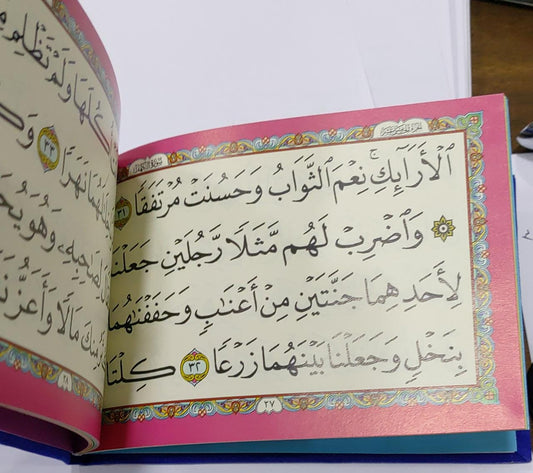 سورة الكهف
الجزء الخامس عشر
ٱلْأَرَآئِكِ ۚ نِعْمَ ٱلثَّوَابُ وَحَسُنَتْ مُرْتَفَقًا ٣١
۞ وَٱضْرِبْ لَهُم مَّثَلًا رَّجُلَيْنِ جَعَلْنَا
لِأَحَدِهِمَا جَنَّتَيْنِ مِنْ أَعْنَٰبٍ وَحَفَفْنَٰهُمَا
بِنَخْلٍ وَجَعَلْنَا بَيْنَهُمَا زَرْعًا ٣٢ كِلْتَا
٢٧
وَلَمْ تَظْلِم
نَهَرًا ٣٣
لِصَٰحِبِهِۦ وَهُوَ
مِنكَ مَالًا وَأَعَزُّ